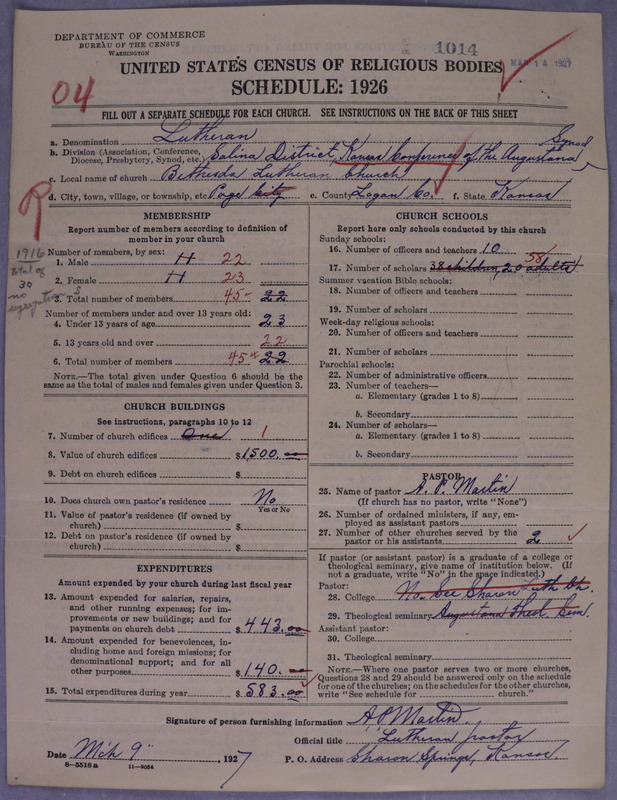 DEPARTMENT OF COMMERCE
BUREAU OF THE CENSUS
WASHINGTON
1014
MAR 14 1927
UNITED STATES CENSUS OF RELIGIOUS BODIES
SCHEDULE: 1926
04
FILL OUT A SEPARATE SCHEDULE FOR EACH CHURCH. SEE INSTRUCTIONS ON THE BACK OF THIS SHEET
a. Denomination Lutheran
b. Division (Association, Conference, Diocese, Presbytery, Synod, etc.) Salina District, Kansas Conference of the Augustana Synod
c. Local name of church Bethesda Lutheran Church
d. City, town, village, or township, etc. Page City e. County Logan Co. f. State Kansas
R
1916
total of
30
no
segregations
MEMBERSHIP
Report number of members according to definition of
member in your church
Number of members, by sex:
1. Male 22
2. Female 23
3. Total number of members 45 22
Number of members under and over 13 years old:
4. Under 13 years of age 23
5. 13 years old and over 22
6. Total number of members 45 22
NOTE.—The total given under Question 6 should be the
same as the total of males and females given under Question 3.
CHURCH BUILDINGS
See instructions, paragraphs 10 to 12
7. Number of church edifices One 1
8. Value of church edifices $1500.
9. Debt on church edifices $
10. Does church own pastor's residence No
Yes or No
11. Value of pastor's residence (if owned by
church) $
12. Debt on pastor's residence (if owned by
church) $
EXPENDITURES
Amount expended by your church during last fiscal year
13. Amount expended for salaries, repairs,
and other running expenses; for im-
provements or new buildings; and for
payments on church debt $443.00
14. Amount expended for benevolences, in-
cluding home and foreign missions; for
denominational support; and for all
other purposes $140.
15. Total expenditures during year $583.00
CHURCH SCHOOLS
Report here only schools conducted by this church
Sunday schools:
16. Number of officers and teachers 10
17. Number of scholars 38 children, 20 adults 58
Summer vacation Bible schools:
18. Number of officers and teachers
19. Number of scholars
Week-day religious schools:
20. Number of officers and teachers
21. Number of scholars
Parochial schools:
22. Number of administrative officers
23. Number of teachers—
a. Elementary (grades 1 to 8)
b. Secondary
24. Number of scholars—
a. Elementary (grades 1 to 8)
b. Secondary
PASTOR
25. Name of pastor A. P. Martin
(If church has no pastor, write "None")
26. Number of ordained ministers, if any, em-
ployed as assistant pastors
27. Number of other churches served by the
pastor or his assistants 2
If pastor (or assistant pastor) is a graduate of a college or
theological seminary, give name of institution below. (If
not a graduate, write "No" in the space indicated.)
Pastor:
28. College No. See Sharon Luth Ch.
29. Theological seminary Augustana Theol. Sem
Assistant pastor:
30. College
31. Theological seminary
NOTE.—Where one pastor serves two or more churches,
Questions 28 and 29 should be answered only on the schedule
for one of the churches; on the schedules for the other churches,
write "See schedule for church."
Signature of person furnishing information A P Martin
Official title Lutheran pastor
Date Mch 9 1927 P. O. Address Sharon Springs, Kansas.
8—5518a 11—9054